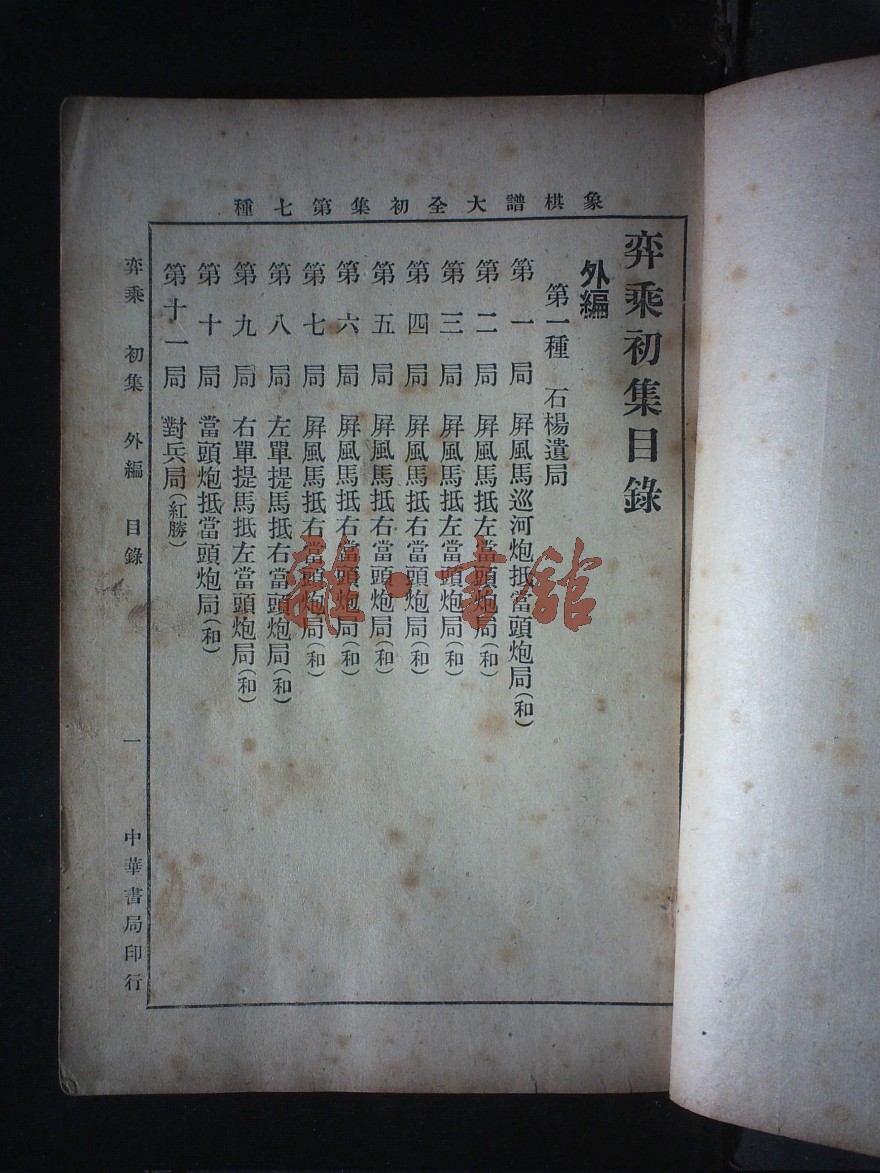 象棋譜大全初集第七種
弈乘初集目錄
外編
第一種 石楊遺局
第一局 屏風馬巡河炮抵當頭炮局(和)
第二局 屏風馬抵左當頭炮局(和)
第三局 屏風馬抵左當頭炮局(和)
第四局 屏風馬抵右當頭炮局(和)
第五局 屏風馬抵右當頭炮局(和)
第六局 屏風馬抵右當頭炮局(和)
第七局 屏風馬抵右當頭炮局(和)
第八局 左單提馬抵右當頭炮局(和)
第九局 右單提馬抵左當頭炮局(和)
第十局 當頭炮抵當頭炮局(和)
第十一局 對兵局(紅勝)
弈乘 初集 外編 目錄 一 中華書局印行
龍·書館